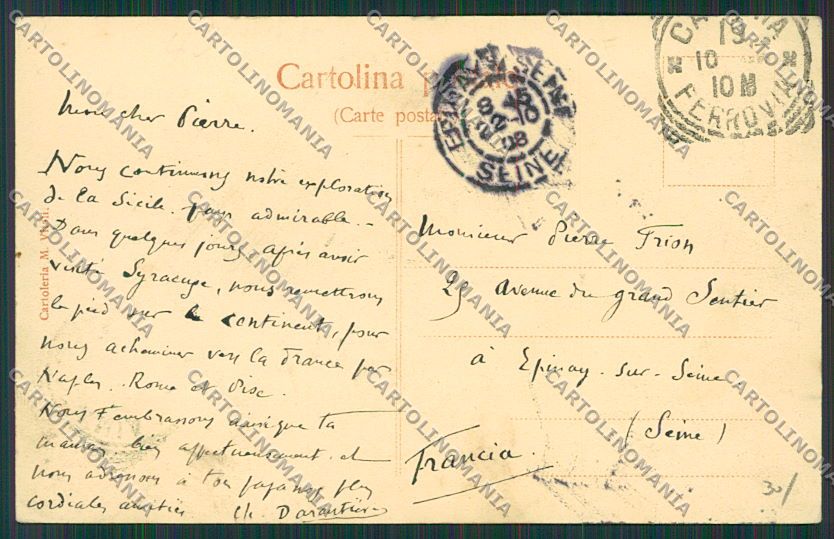 Cartolina postale
(Carte postale)
Mon cher Pierre.
Nous continuons notre exploration
de la Sicile. pays admirable. -
Dans quelques jours, après avoir
visité Syracuse, nous remettrons
le pied sur le continent, pour
nous acheminer vers la France par
Naples. Rome et Pise.
Nous t'embrassons ainsi que ta
maman bien affectueusement et
nous adressons à ton papa nos plus
cordiales amitiés Ch. Darantière
Cartoleria M.
EPINAY-S-SEINE
8 45
2-10
08
SEINE
19
10
10 M
FERROVIA
Monsieur Pierre Trion
25 Avenue du grand Sentier
à Epinay-sur-Seine.
(Seine)
Francia.
CARTOLINOMANIA